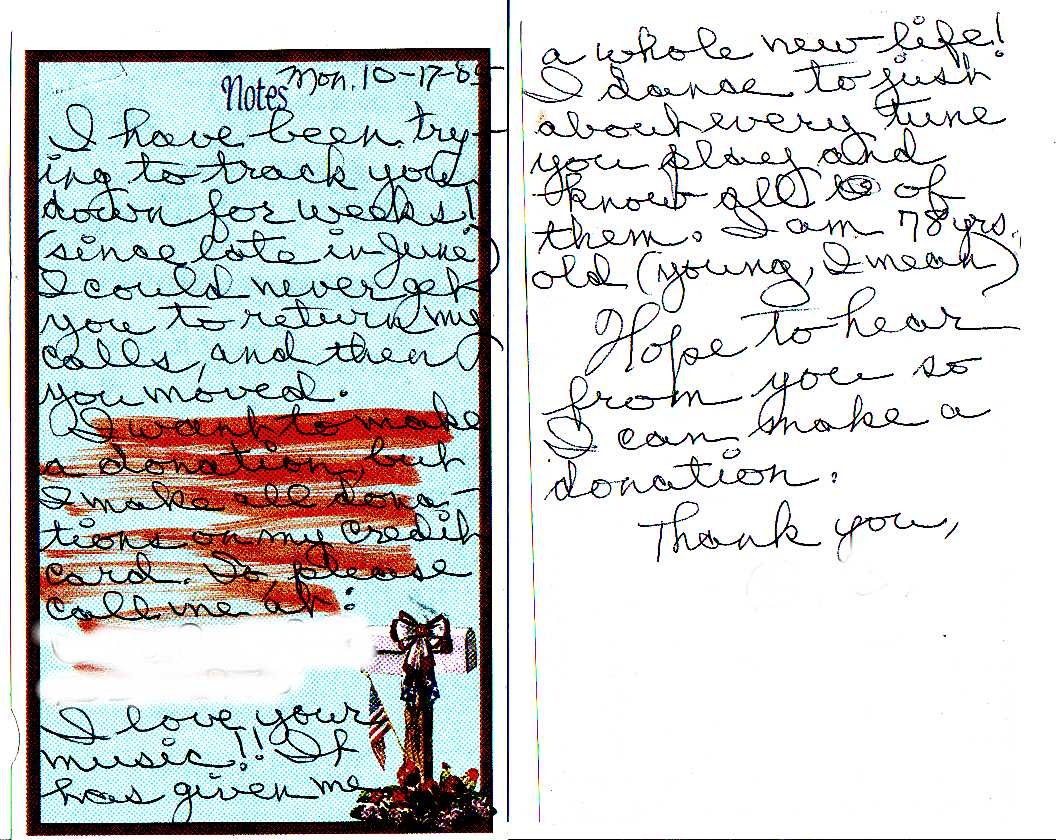 Notes
Mon. 10-17-8
I have been try-
ing to track you
down for weeks!
(since late in June)
I could never get
you to return my
calls, and then
you moved.
I want to make
a donation, but
I make all dona-
tions on my credit
card. So, please
call me at:
I love your
music!! It
has given me
a whole new life!
I dance to just
about every tune
you play and
know all of
them. I am 78 yrs.
old (young, I mean)
Hope to hear
from you so
I can make a
donation.
Thank you,